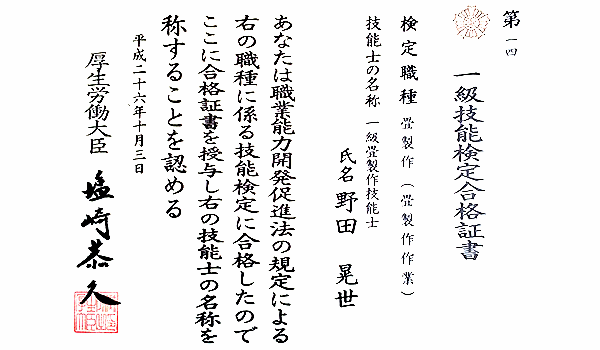 第一四
一級技能検定合格証書
検定職種 畳製作(畳製作作業)
技能士の名称 一級畳製作技能士
氏名 野田 晃世
あなたは職業能力開発促進法の規定による
右の職種に係る技能検定に合格したので
ここに合格証書を授与し右の技能士の名称を
称することを認める
平成二十六年十月三日
厚生労働大臣 塩崎恭久